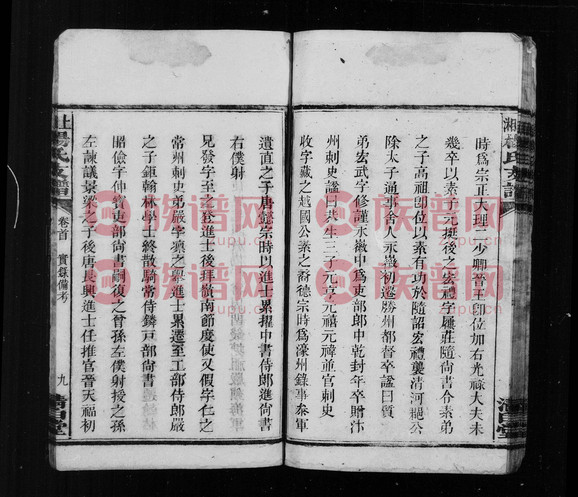 時爲宗正大理二少卿晉王卽位加右光祿大夫未
幾卒以素子元挺後之宏禮字履莊隨尚書令素弟
之子高祖卽位以素有功於隨詔宏禮襲清河郡公
除太子通事舍人永徽初遷勝州都督卒諡曰質
弟宏武字修謹永徽中爲吏部郎中乾封年卒贈汴
州刺史諡曰恭生三子元亨元禧元禕並官刺史
收字藏之越國公素之裔德宗時爲濠州錄事叅軍
遺直之子唐懿宗時以進士累擢中書侍郎進尚書
右僕射
兄發字至之登進士後拜嶺南節度使又假字仁之
常州刺史弟嚴字凜之舉進士累遷至工部侍郎嚴
之子鉅翰林學士終散騎常侍鏻戸部尚書
昭儉字仲寶吏部尚書嗣復之曾孫左僕射授之孫
左諫議景梁之子後唐長興進士任推官晉天福初
湘 楊氏支譜
清白堂
上 楊氏支譜
卷首
實錄備考
九
清白堂
族谱网
zupu.cn